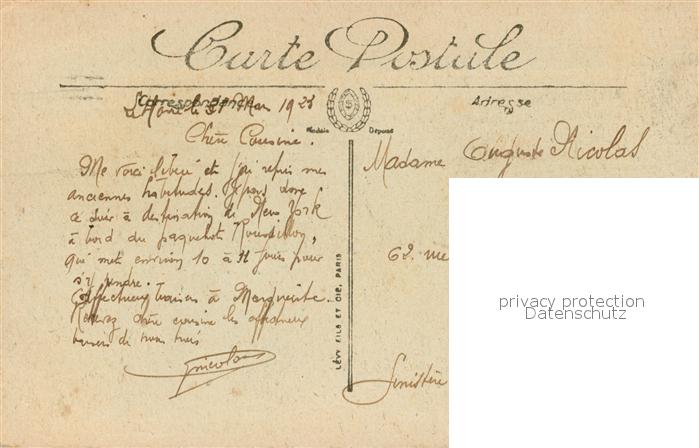 Carte Postale
Correspondance
Adresse
Le Havre le 31 Mars
Chère Cousine.
Me voici libéré et j'ai repris mes
anciennes habitudes. Je pars donc
ce soir à destination de New York
à bord du paquebot Roussillon,
qui met environ 10 à 11 jours pour
s'y rendre.
Affectueux baisers à Marguerite.
Recevez chère cousine les affectueux
baisers de nous trois
Nicolas
Modèle Déposé
LÉVY FILS ET CIE, PARIS
Madame Auguste Nicolas
62. rue
Finistère
privacy protection
Datenschutz